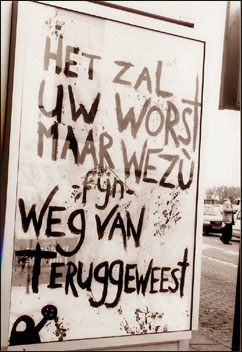 HET ZAL
UW WORST
MAAR WEZÙ
-FYN-
WEG VAN
TERUGGEWEEST